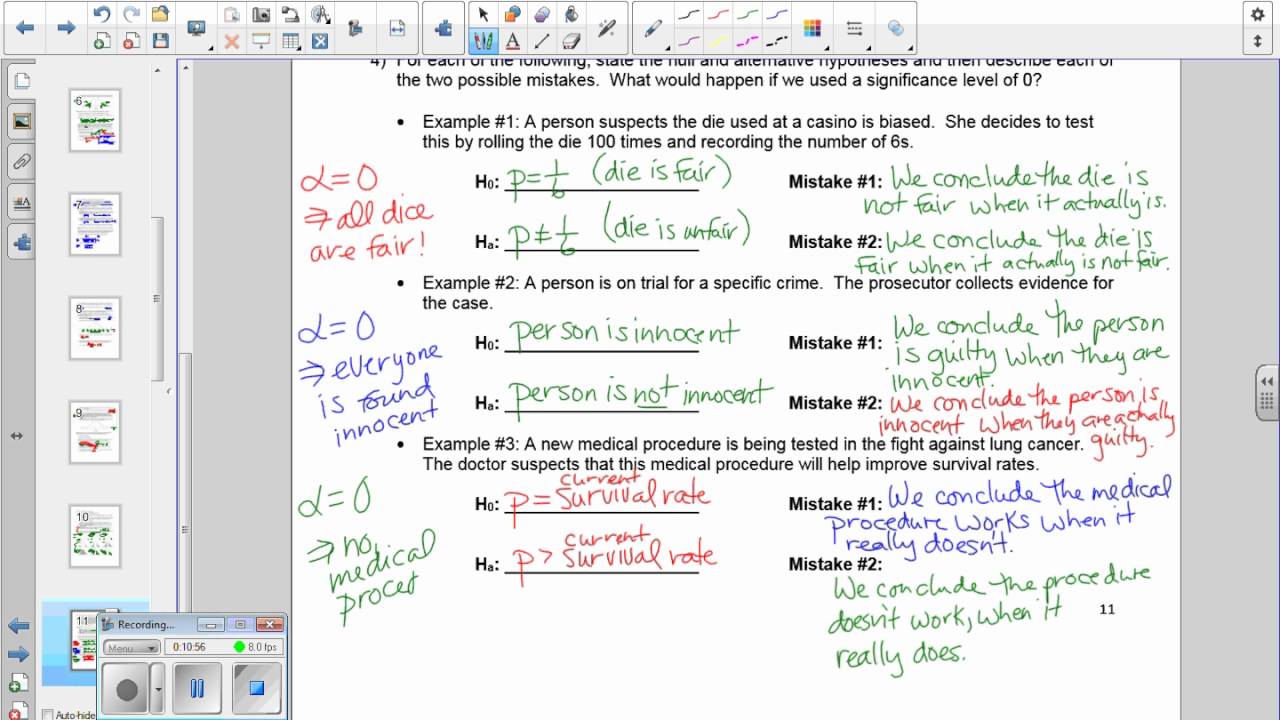 4) For each of the following, state the null and alternative hypotheses and then describe each of
the two possible mistakes. What would happen if we used a significance level of 0?
• Example #1: A person suspects the die used at a casino is biased. She decides to test
this by rolling the die 100 times and recording the number of 6s.
α=0
⇒ all dice
are fair!
H₀: p=1/6 (die is fair)
Hₐ: p≠1/6 (die is unfair)
Mistake #1: We conclude the die is
not fair when it actually is.
Mistake #2: We conclude the die is
fair when it actually is not fair.
• Example #2: A person is on trial for a specific crime. The prosecutor collects evidence for
the case.
α=0
⇒ everyone
is found
innocent
H₀: person is innocent
Hₐ: person is not innocent
Mistake #1: We conclude the person
is guilty when they are
innocent.
Mistake #2: We conclude the person is
innocent when they are actually
guilty.
• Example #3: A new medical procedure is being tested in the fight against lung cancer.
The doctor suspects that this medical procedure will help improve survival rates.
α=0
⇒ no
medical
proced
current
H₀: p = survival rate
current
Hₐ: p > survival rate
Mistake #1: We conclude the medical
procedure works when it
really doesn't.
Mistake #2:
We conclude the procedure
doesn't work, when it
really does.
11
6
7
8
9
10
11
Recording...
Menu
0:10:56
8.0 fps
Auto-hide